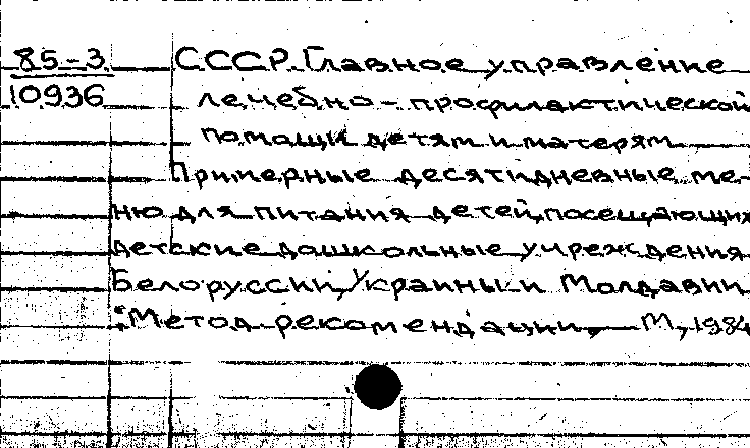 85-3 СССР. Главное управление
10936 лечебно-профилактической
помощи детям и матерям.
Примерные десятидневные ме-
ню для питания детей, посещающих
детские дошкольные учреждения
Белоруссии, Украины и Молдавии
: Метод. рекомендации, — М., 1984